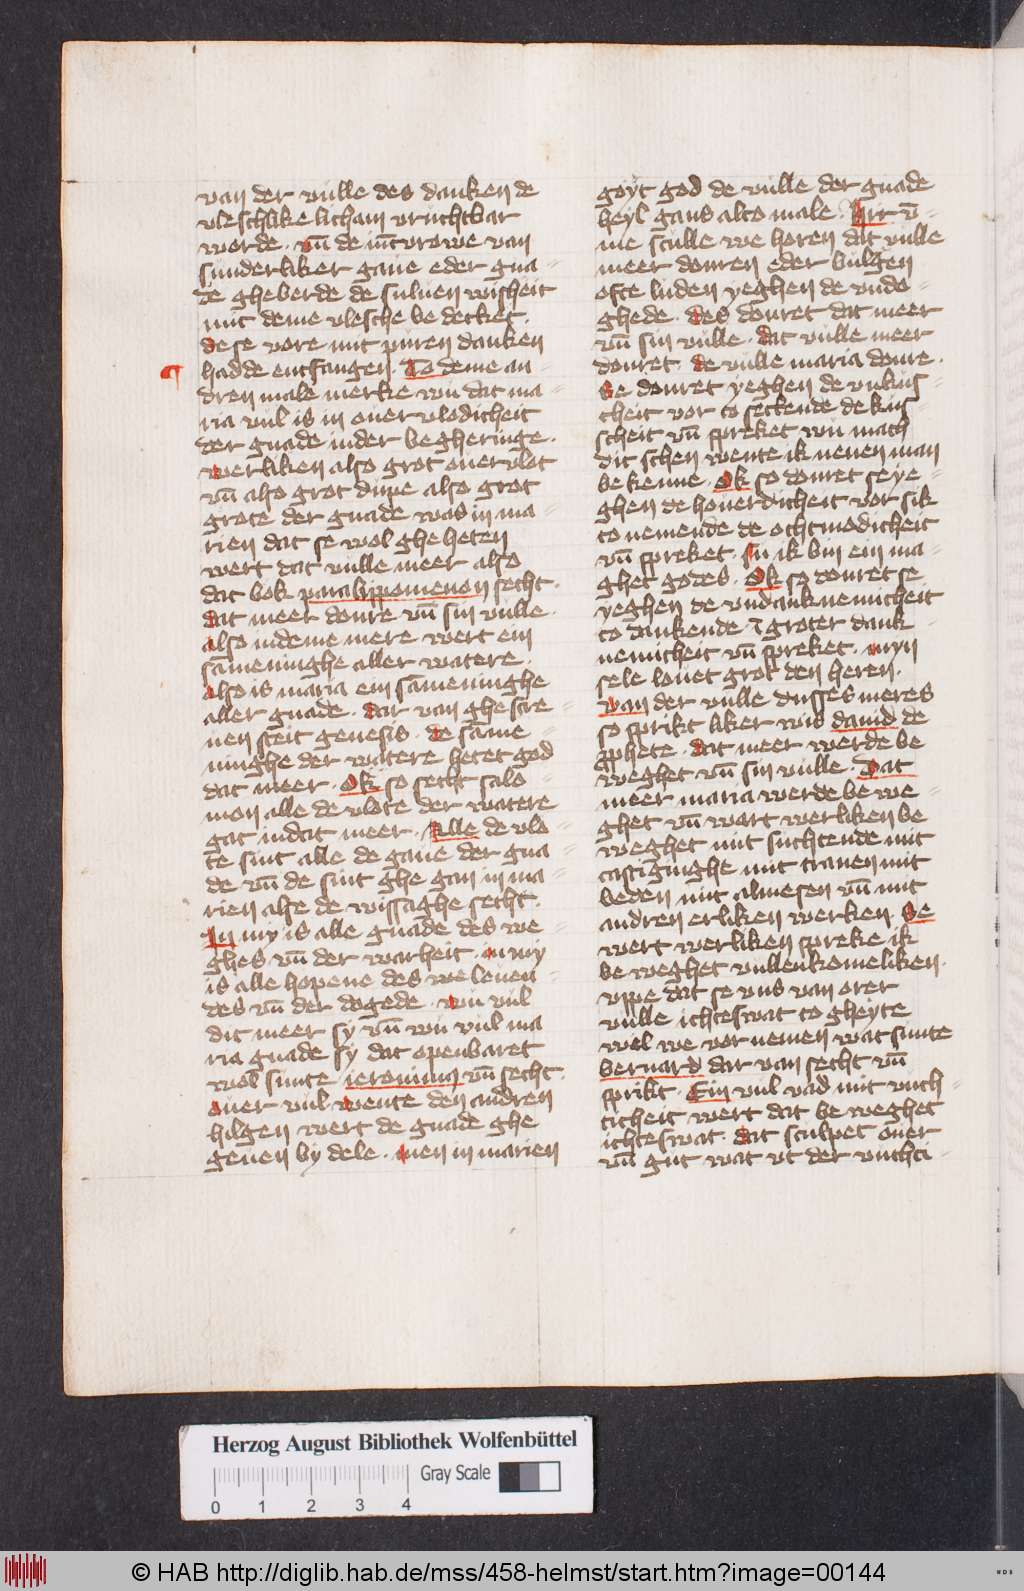 van der vulle des danken de
vleschlike licham vruchtbar
worde. vn̄ de iūcvrowe van
sunderliker gaue eder gna⸗
de gheberde de suluen wisheit
mit deme vlesche be decket.
dese vore mit puren danken
hadde entfangen. To deme an⸗
¶ dren male merke wu dat ma⸗
ria vul is in ouervlodicheit
der gnade inder begheringe.
werliken also grot ouervlot
vn̄ also grot dupe also grot
grote der gnade was in ma⸗
rien dat se wol ghe heten
wert dat vulle meer also
dat bok paralippomenon secht.
dat meer donre vn̄ sin vulle.
also indeme mere wert ein
sāmeninghe aller watere.
also is maria ein sāmeninghe
aller gnade. dar van ghe scre⸗
uen steit genesis. de sāme⸗
ninghe der watere hetet god
dat meer. Ok so secht salo⸗
mon alle de vlote der watere
gat indat meer. Alle de vlo⸗
te sint alle de gaue der gna⸗
de vn̄ de sint ghe gan in ma⸗
rien alse de wissaghe secht.
In my is alle gnade des we⸗
ghes vn̄ der warheit. in my
is alle hopene des we leuen⸗
des vn̄ der dogede. wu vul
dit meer sy vn̄ wu vul ma⸗
ria gnade sy dat openbaret
wol sunte ieronimus vn̄ secht.
ouer vul wente den andren
hilgen wert de gnade ghe
geuen by dele. men in marien
goyt god de vulle der gnade
heyl gans alto male. Hir v̄⸗
me sculle we horen dat vulle
meer donren eder bulgen
ofte luden yeghen de vndo⸗
ghede. Des donret dat meer
vn̄ sin vulle. dat vulle meer
donret. de vulle maria donre.
Se donret yeghen de vnkus⸗
cheit vor to settende de kus
scheit vn̄ spreket wu mach
dit schen wente ik nenen man
be kenne. Ok so donret se ye⸗
ghen de houerdicheit vor sik
to nemende de othmodicheit
vn̄ spreket. Su ik bin ein ma⸗
ghet godes. Ok so donret se
yeghen de vndanknemicheit
to dankende ī groter dank⸗
nemicheit vn̄ spreket. myn
sele louet grot den heren.
Van der vulle dusses meres
so sprikt liker wis dauid de
p̄phete. dat meer werde be
weghet vn̄ sin vulle. Dat
meer maria werde be we⸗
ghet vn̄ wart werliken be
weghet mit suchtende mit
castiginghe mit tranen mit
beden mit almesen vn̄ mit
andren erliken werken. Se
wert werliken spreke ik
be weghet vullenkomeliken.
vppe dat se vns van orer
vulle ichteswat to gheyte
wol we vornemen wat sunte
bernard dar van secht vn̄
sprikt. Ein vul vad mit vuch⸗
ticheit wert dat be weghet
ichteswat. dat sculpet ouer
vn̄ gut wat vt der vuchti⸗
Herzog August Bibliothek Wolfenbüttel
Gray Scale
0 1 2 3 4
© HAB http://diglib.hab.de/mss/458-helmst/start.htm?image=00144